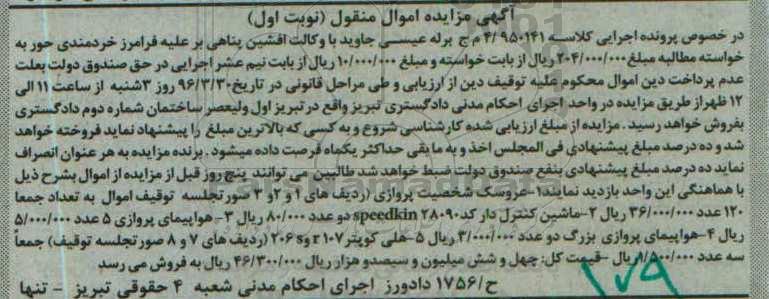 آگهی مزایده اموال منقول (نوبت اول)
در خصوص پرونده اجرایی کلاسه ۹۵۰۱۴۱/ ۴ م ج برله عیسی جاوید با وکالت افشین پناهی بر علیه فرامرز خردمندی حور به
خواسته مطالبه مبلغ ۲۰۴/۰۰۰/۰۰۰ ریال از بابت خواسته و مبلغ ۱۰/۰۰۰/۰۰۰ ریال از بابت نیم عشر اجرایی در حق صندوق دولت بعلت
عدم پرداخت دین اموال محکوم علیه توقیف دین از ارزیابی و طی مراحل قانونی در تاریخ ۹۶/۳/۳۰ روز ۳شنبه از ساعت ۱۱ الی
۱۲ ظهر از طریق مزایده در واحد اجرای احکام مدنی دادگستری تبریز واقع در تبریز اول ولیعصر ساختمان شماره دوم دادگستری
بفروش خواهد رسید. مزایده از مبلغ ارزیابی شده کارشناسی شروع و به کسی که بالاترین مبلغ را پیشنهاد نماید فروخته خواهد
شد و ده درصد مبلغ پیشنهادی فی المجلس اخذ و به ما بقی حداکثر یکماه فرصت داده میشود. برنده مزایده به هر عنوان انصراف
نماید ده درصد مبلغ پیشنهادی بنفع صندوق دولت ضبط خواهد شد طالبین می توانند پنج روز قبل از مزایده از اموال بشرح ذیل
با هماهنگی این واحد بازدید نمایند ۱-عروسک شخصیت پروازی (ردیف های ۱ و ۲و ۳ صورتجلسه توقیف اموال به تعداد جمعا
۱۲۰ عدد ۳۶/۰۰۰/۰۰۰ ریال ۲-ماشین کنترل دار کد ۲۸۰۹۰ speedkin دو عدد ۸۰/۰۰۰ ریال ۳- هواپیمای پروازی ۵ عدد ۵/۰۰۰/۰۰۰
ریال ۴-هواپیمای پروازی بزرگ دو عدد ۳/۰۰۰/۰۰۰ ریال ۵-هلی کوپتر r۱۰۷ و ۲۰۶s (ردیف های ۷ و ۸ صورتجلسه توقیف) جمعاً
سه عدد ۱/۵۰۰/۰۰۰ ریال -قیمت کل: چهل و شش میلیون و سیصدو هزار ریال ۴۶/۳۰۰/۰۰۰ ریال به فروش می رسد
ح/۱۷۵۶ دادورز اجرای احکام مدنی شعبه ۴ حقوقی تبریز - تنها
۱۰۷۹